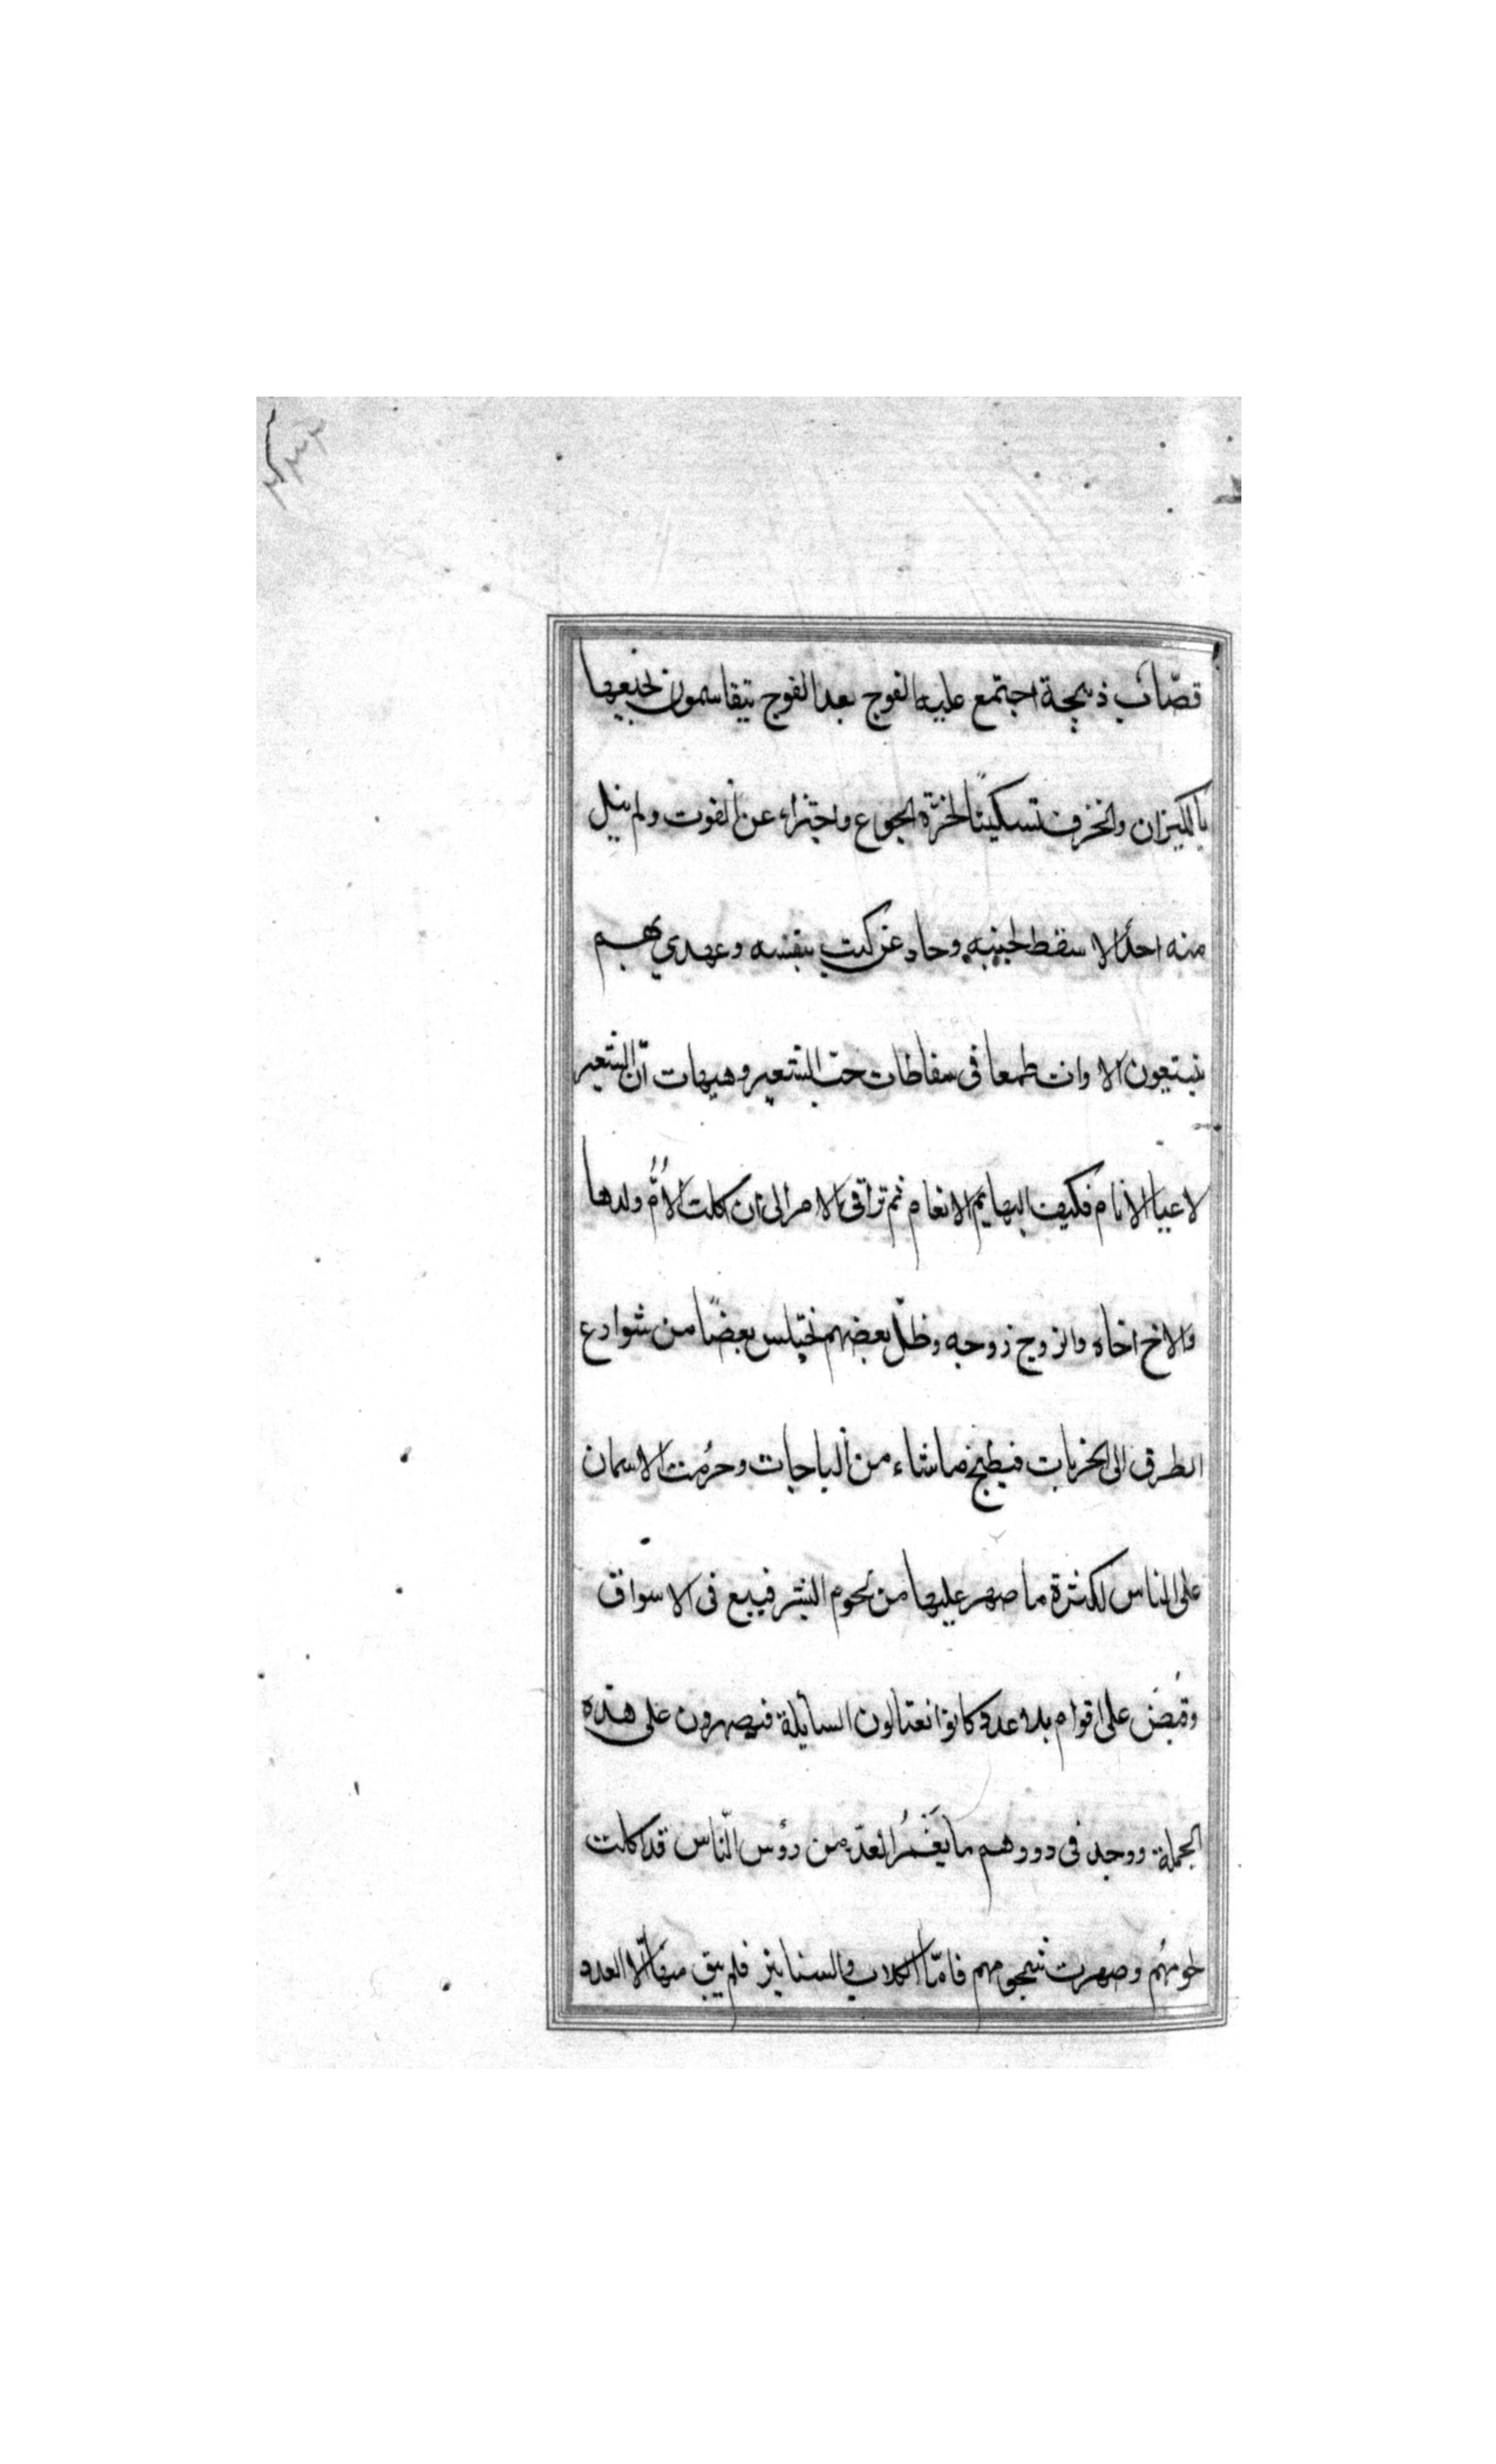 قصّاب ذبيحة اجتمع عليه الفوج بعد الفوج يتقاسمون نجيعها
بالكيزان والخزف تسكينًا لحزة الجوع واجتزاء عن القوت ولم ينل
منه احدٌ الا سقط لجنبه وجاد عن كثب بنفسه وعهدي بهم
يتبعون الاوراث طمعا فى سقاطات حبّ الشعير وهيهات انّ الشعير
لاعيا الانام فكيف البهايم الانعام ثم تراقى الامر الى ان اكلت الاُمُّ ولدها
والاخ اخاه والزوج زوجه وظلّ بعضهم يختلس بعضًا من شوارع
الطرق الى الخربات فيطبخ ماشاء من الباجات وحرُمت الاسمان
على الناس لكثرة ما صهر عليها من لحوم البشر فيبيع فى الاسواق
وقُبضَ على اقوام بلا عدد كانوا يغتالون السايلة فيصهرون على هذه
الجملة ووجد فى دورهم ما يَغْمُر العدّ من رؤس النّاس قد اكلت
لحومُهُم وصهرت شحومهم فامّا الكلاب والسنانير فلم يبق منها الّا العدد